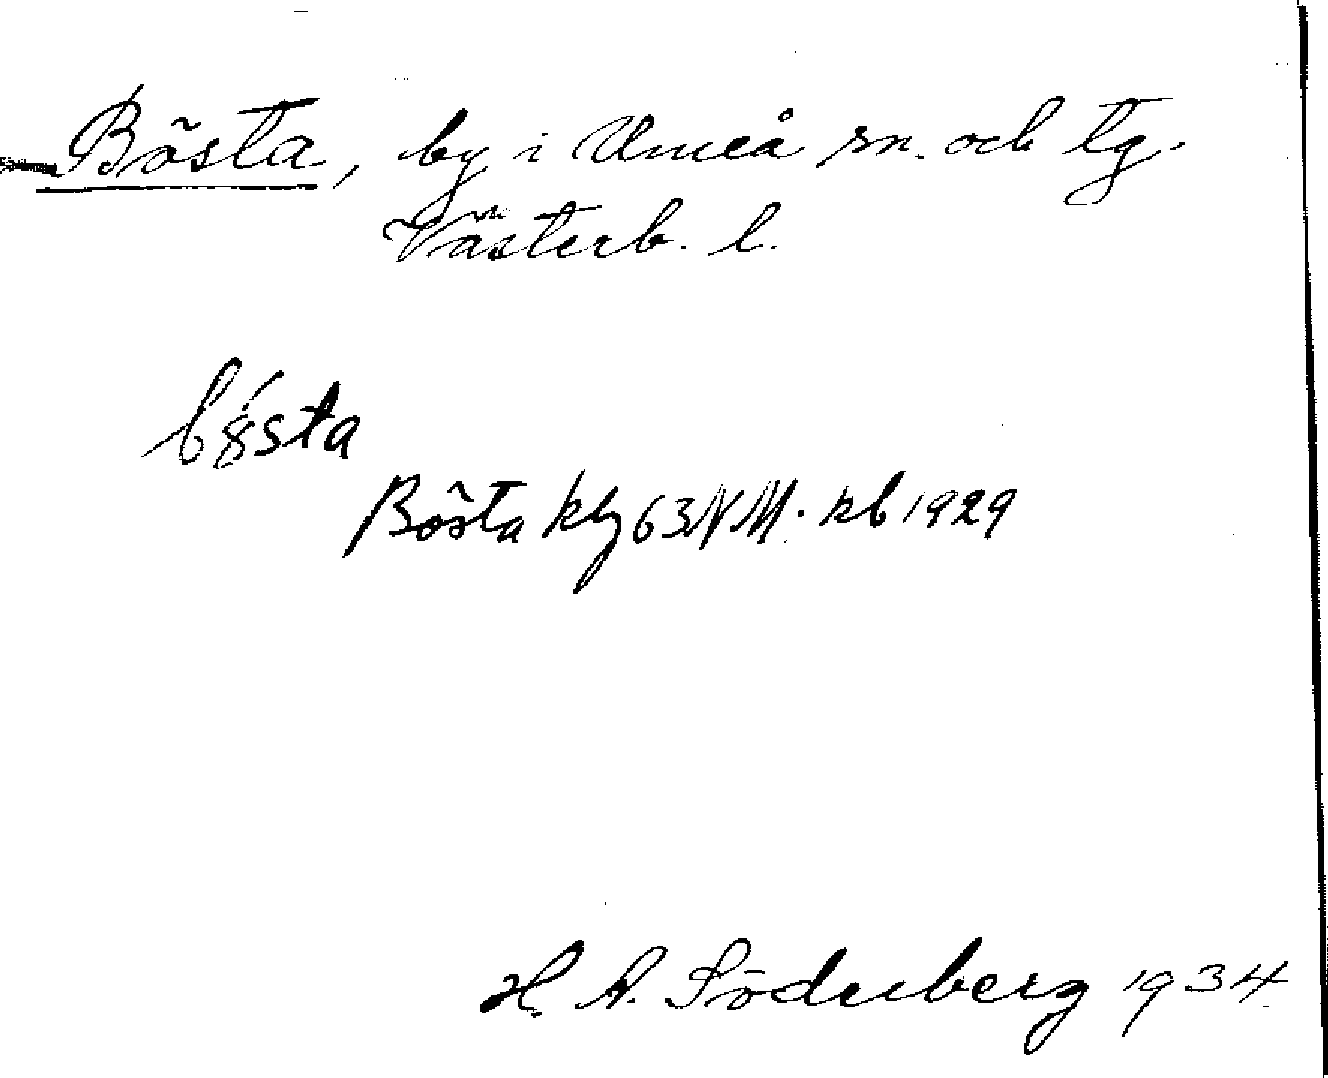 Bösta, by i Umeå sn. och tg.
Västerb. l.
Bösta kbg 63 NV M. kb 1929
H. A. Söderberg 1934